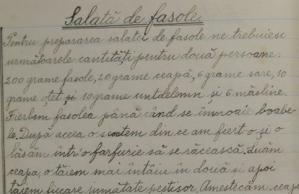 Salată de fasole
Pentru prepararea salatei de fasole ne trebuiesc
următoarele cantități pentru două persoane:
200 grame fasole, 20 grame ceapă, 6 grame sare, 10
grame oțet și 10 grame untdelemn, și 6 măsline.
Fierbem fasolea până când se înmoaie boabe-
le. După aceea o scoatem din ce am fiert-o și o
lăsăm într-o farfurie să se răcească. Luăm
ceapa, o tăiem mai întâiu în două și apoi
tăiem fiecare jumătate peștișor. Amestecăm ceapa